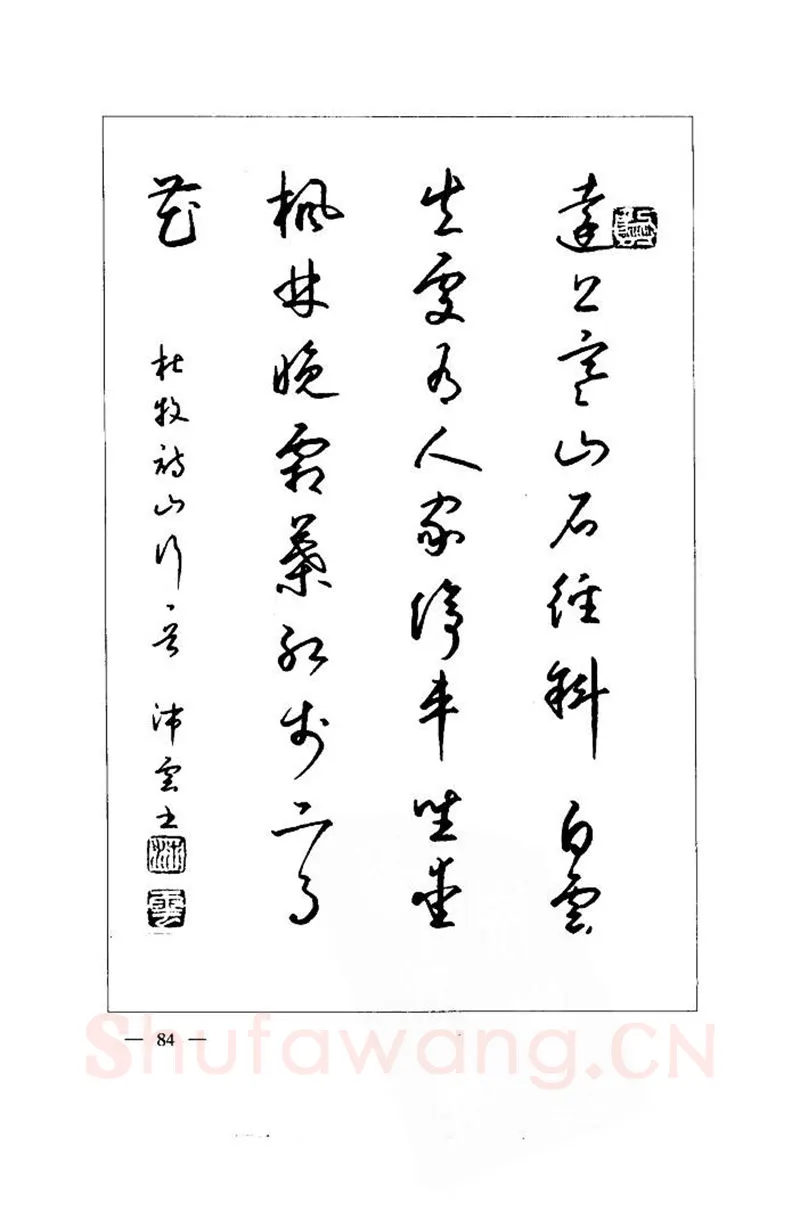 遠上寒山石徑斜白雲
生處有人家停車坐愛
楓林晚霜葉紅於二月
花
杜牧詩山行一首 沛雲書
沛
雲
— 84 —
Shufawang.CN